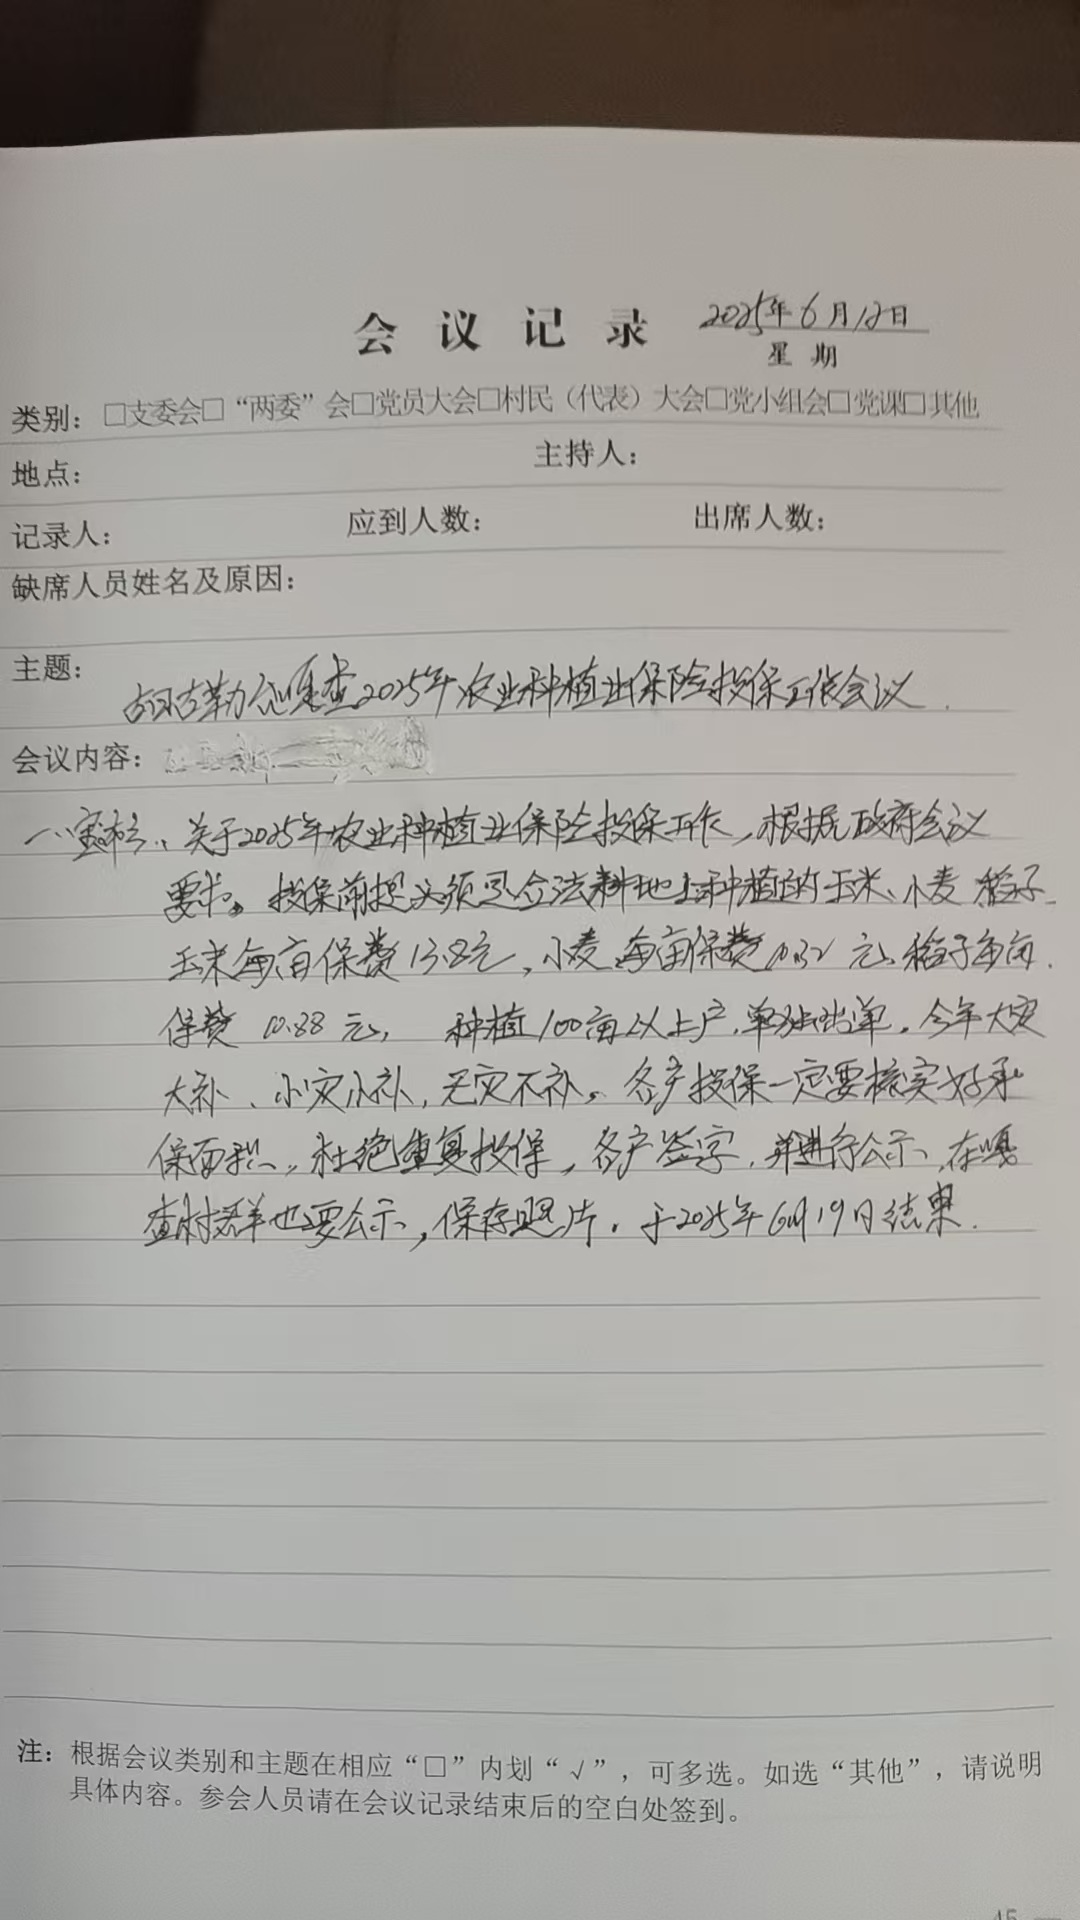 会议记录 2025年6月12日
星期
类别：□支委会□“两委”会□党员大会□村民（代表）大会□党小组会□党课□其他
地点： 主持人：
记录人： 应到人数： 出席人数：
缺席人员姓名及原因：
主题：
查2025年农业种植业保险投保工作会议.
会议内容：
一、关于2025年农业种植业保险投保工作，根据政府会议
要求。投保前提必须是合法耕地上种植的玉米、小麦 稻子
玉米每亩保费13.8元，小麦每亩保费10.32元、稻子每亩
保费 10.88元， 种植100亩以上户，单独出单，今年大灾
大补、小灾小补，无灾不补。各户投保一定要核实好承
保面积，杜绝重复投保，各户签字，并进行公示，在嘎
查村群也要公示，保存照片，于2025年6月19日结束.
注：根据会议类别和主题在相应“□”内划“√”，可多选。如选“其他”，请说明
具体内容。参会人员请在会议记录结束后的空白处签到。
45